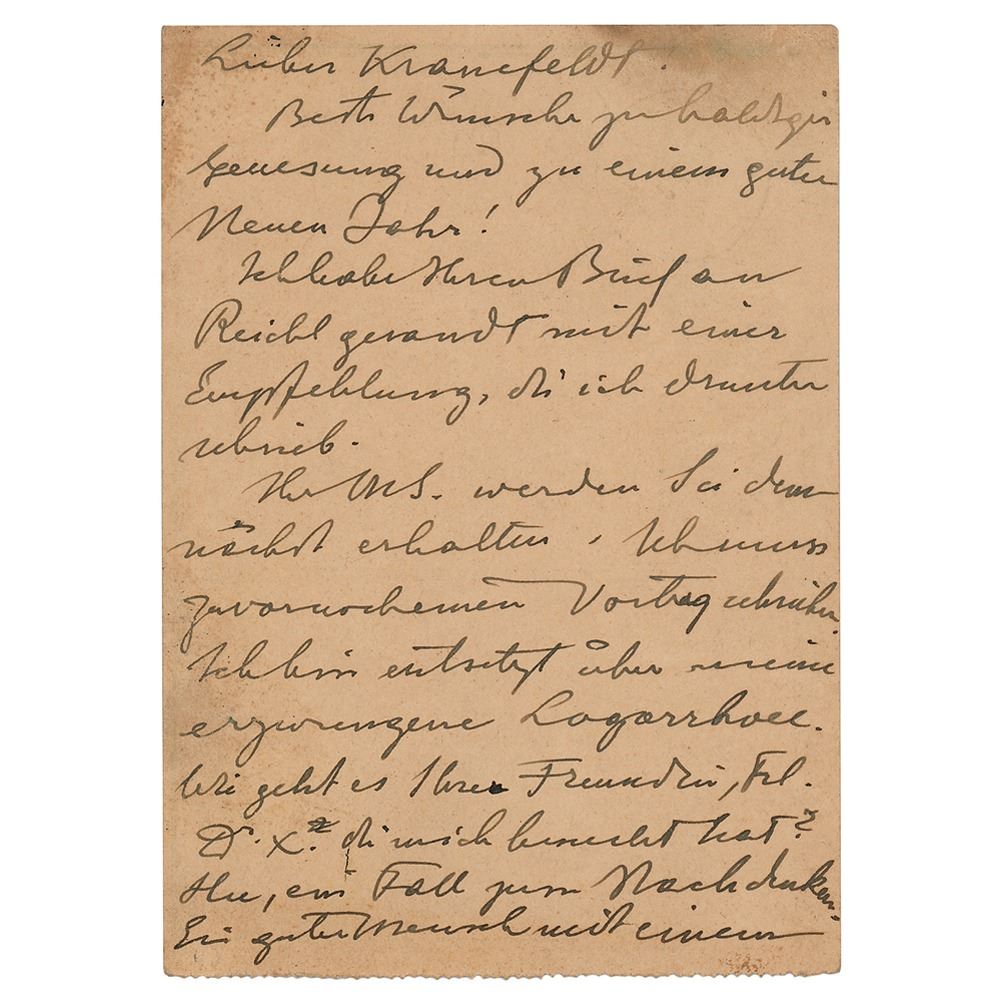 Lieber Kranefeldt!
Beste Wünsche zu baldiger
Genesung und zu einem guten
Neuen Jahr!
Ich habe Ihren Brief an
Reichl gesandt mit einer
Empfehlung, die ich drunter
schrieb.
Ihr MS. werden Sie dem-
nächst erhalten. Ich muss
zuvor noch einen Vortrag schreiben.
Ich bin entsetzt über meine
erzwungene Logorrhoee.
Wie geht es Ihrer Freundin, Frl.
Dr. X.? die mich besucht hat?
ein Fall zum Nachdenken.
Ein guter Mensch mit einem